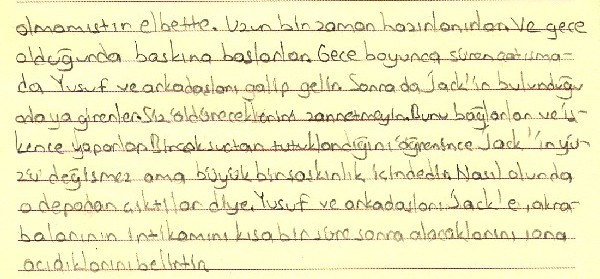 olmamıştır elbette. Uzun bir zaman hazırlanırlar. Ve gece
olduğunda baskına başlarlar. Gece boyunca süren çatışma-
da Yusuf ve arkadaşları galip gelir. Sonra da Jack'in bulunduğu
odaya girerler. Siz öldüreceklerini zannetmeyin. Bunu bağlarlar ve iş-
kence yaparlar. Birçok suçtan tutuklandığını öğrenince Jack''in yü-
zü değişmez ama büyük bir şaşkınlık içindedir. Nasıl olurda
o depodan çıktılar diye. Yusuf ve arkadaşları Jack'e, akra-
balarının intikamını kısa bir süre sonra alacaklarını, ona
acıdıklarını belirtir.